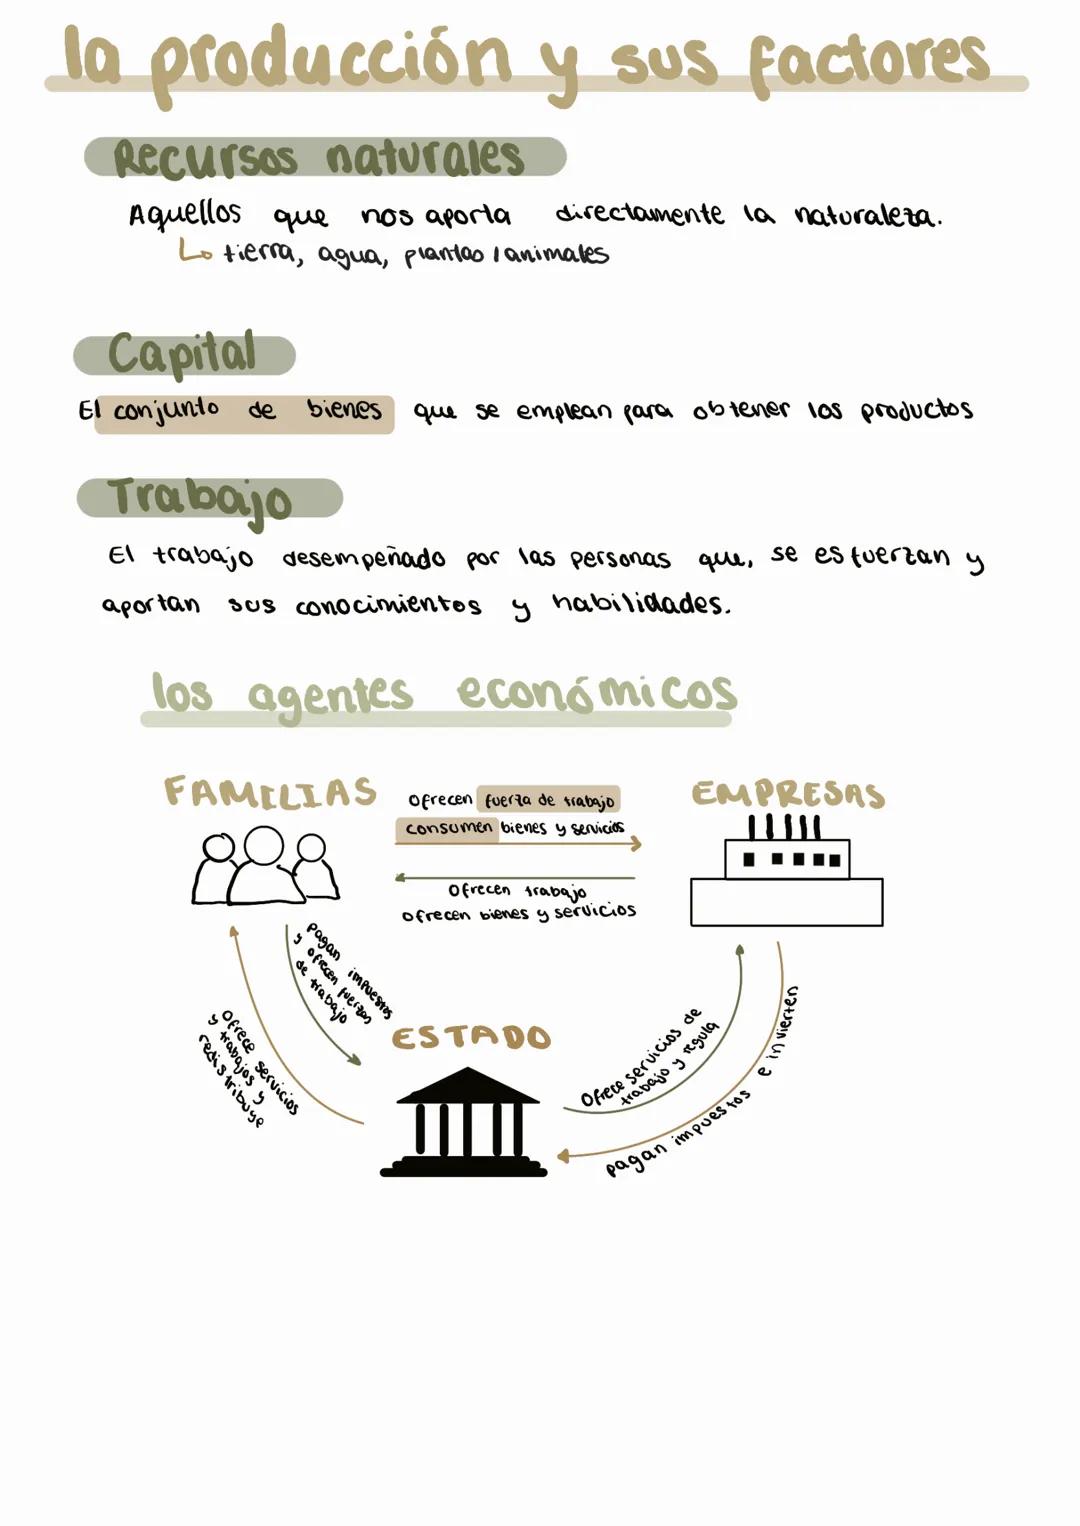 la producción y sus factores
Recursos naturales
Aquellos que nos aporta directamente la naturaleza.
tierra, agua, plantas / animales
Capital
El conjunto de bienes que se emplean para obtener los productos
Trabajo
El trabajo desempeñado por las personas que, se esfuerzan y
aportan sus conocimientos y habilidades.
los agentes económicos
FAMILIAS
Ofrecen fuerza de trabajo
consumen bienes y servicios
EMPRESAS
Ofrecen trabajo
ofrecen bienes y servicios
pagan impuestos
y ofrecen fuerzas
de trabajo
Ofrece servicios
y trabajos y
redistribuye
ESTADO
Ofrece servicios de
trabajo y regula
pagan impuestos e invierten